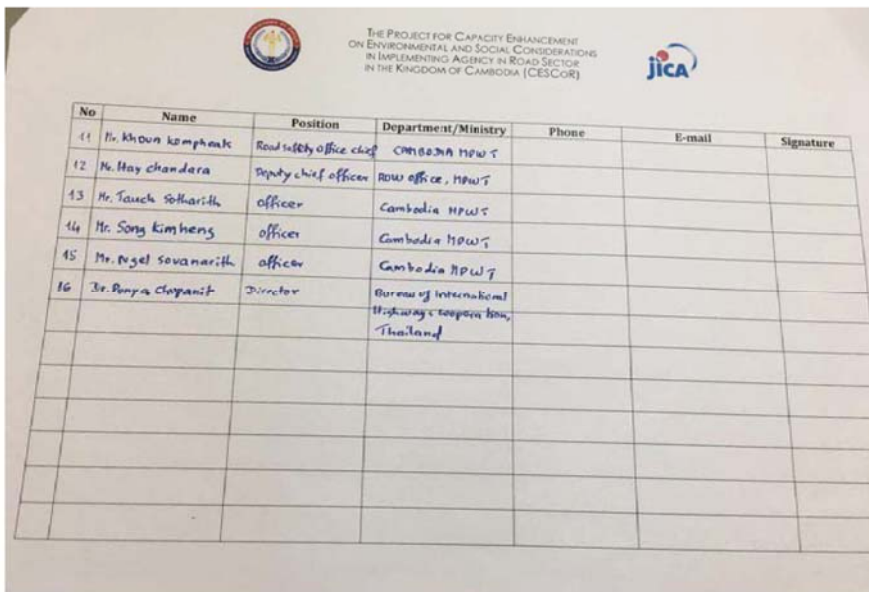 THE PROJECT FOR CAPACITY ENHANCEMENT
ON ENVIRONMENTAL AND SOCIAL CONSIDERATIONS
IN IMPLEMENTING AGENCY IN ROAD SECTOR
IN THE KINGDOM OF CAMBODIA (CESCOR)
jICA
No Name Position Department/Ministry Phone E-mail Signature
11 Mr. Khoun Kompheak Road safety office chief CAMBODIA MPWT
12 Mr. Hay chandara Deputy chief officer ROW office, MPWT
13 Mr. Tauch Sotharith officer Cambodia MPWT
14 Mr. Song Kimheng officer Cambodia MPWT
15 Mr. Ngel Sovanarith officer Cambodia MPWT
16 Dr. Punya Director Bureau of International
Highways Cooperation,
Thailand